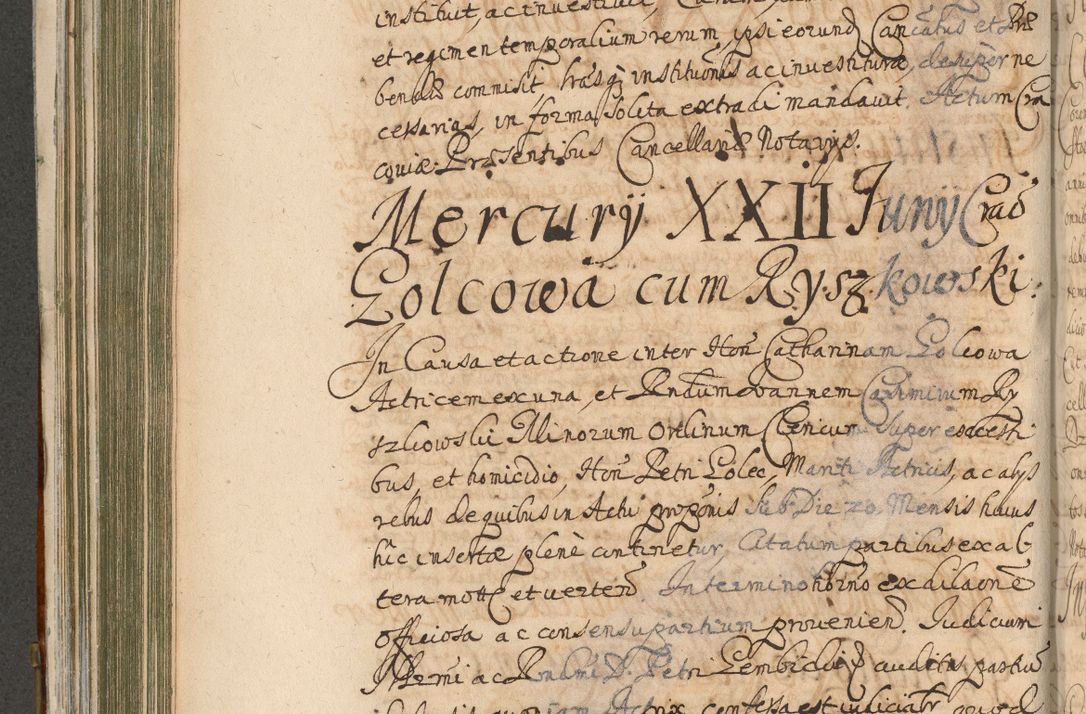 instituit, ac investivit, Curam
et regimen temporalium rerum, ipsi eorund Cancatus et Prae
bendas commisit, hrasq institutionis ac investiturae, desuper ne
cessarias, in forma solita extradi mandavit. Actum Cra
coviae Praesentibus Cancellariae Notarijs.
Mercurij XXII Junij Crac
Golcowa cum Ryszkowski.
In Causa et actione inter Hon Catharinam Golcowa
Actricem ex una, et Rndum Joannem Casimirum Ry
szkowski Minorum Ordinum Clericum super excessi
bus, et homicidio, Hon Petri Golec, Mariti Actricis, ac alys
rebus de quibus in Acti propōnis sub Die 20 Mensis huius
hic insertae plenè continetur, Citatum partibus ex al
tera mott et verten. In termino horno ex dilaone
officiosa ac consensu partium provenien. Judicium
Illrmi ac Rndmi D. Petri Gembicki audita partiu